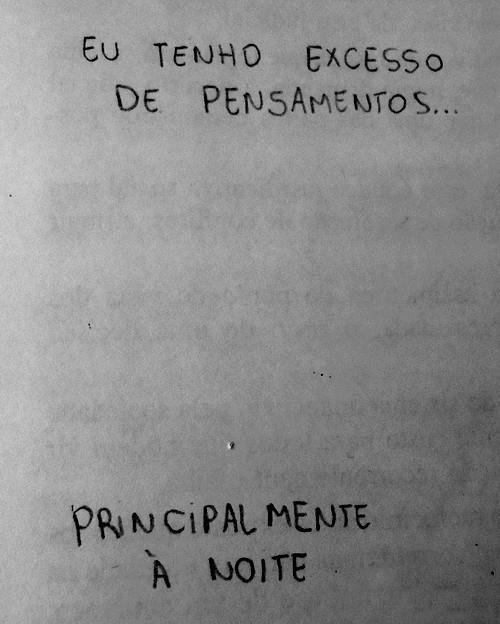 EU TENHO EXCESSO
DE PENSAMENTOS...
PRINCIPALMENTE
À NOITE